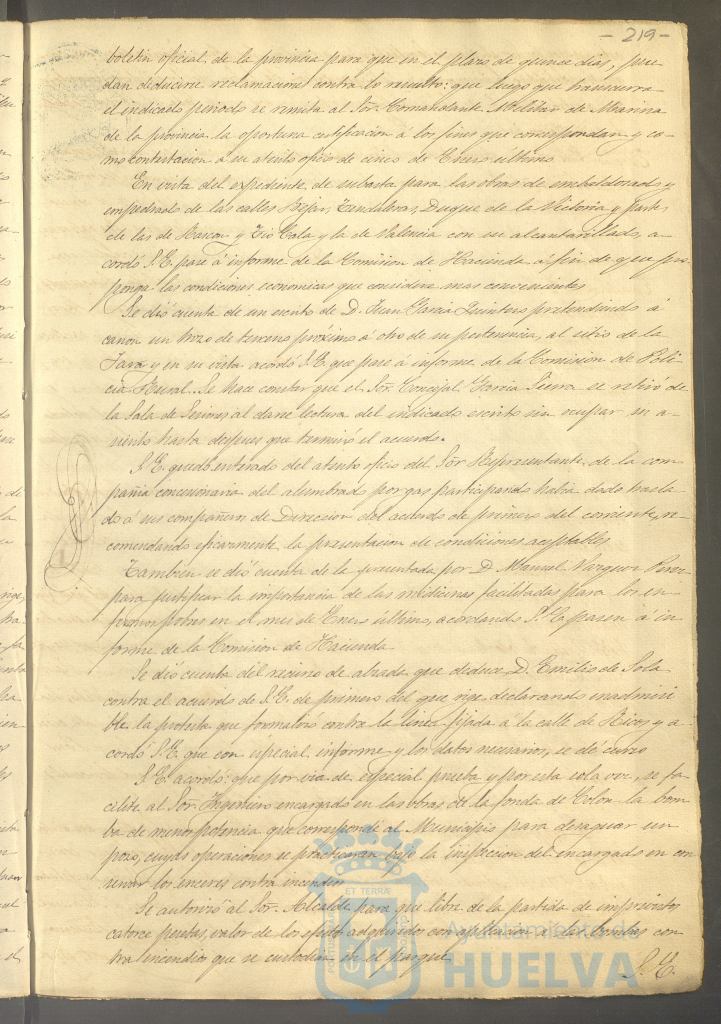 - 219 -
boletin oficial de la provincia para que en el plazo de quince dias, pue-
dan deducirse reclamaciones contra lo resuelto: que luego que transcurra
el indicado periodo se remita al Sor. Comandante Militar de Marina
de la provincia la oportuna certificacion á los fines que correspondan y co-
mo contestacion á su atento oficio de cinco de Enero último.
En vista del expediente de subasta para las obras de embaldosado y
empedrado de las calles Bejar, Tendaleras, Duque de la Victoria y parte
de las de Rascon y Tio Cala y la de Valencia con su alcantarillado, a-
cordó S. E. pase á informe de la Comision de Hacienda á fin de que pro-
ponga las condiciones economicas que considere mas convenientes
Se dió cuenta de un escrito de D. Juan Garcia Quintero pretendiendo á
canon un trozo de terreno próximo á otro de su pertenencia, al sitio de la
Jara y en su vista acordó S. E. que pase á informe de la Comision de Poli-
cia Rural. Se hace constar que el Sor. Concejal Garcia Sierra se retiró de
la Sala de Sesiones al darse lectura del indicado escrito sin ocupar su a-
siento hasta despues que terminó el acuerdo.
S. E. quedó enterado del atento oficio del Sor. Representante de la com-
pañia concesionaria del alumbrado por gas participando habia dado trasla-
do á sus compañeros de Direccion del acuerdo de primero del corriente, re-
comendando eficazmente la presentacion de condiciones aceptables
Tambien se dió cuenta de la presentada por D. Manuel Vazquez Perez
para justificar la importancia de las medicinas facilitadas para los en-
fermos pobres en el mes de Enero último, acordando S. E. pasen á in-
forme de la Comision de Hacienda
Se dió cuenta del recurso de alzada que deduce D. Emilio de Sola
contra el acuerdo de S. E. de primero del que rige declarando inadmisi-
ble la protesta que formalizó contra la linea fijada á la calle de Ricos y a-
cordó S. E. que con especial informe y los datos necesarios, se dé curso
S. E. acordó: que por via de especial prueba y por esta sola vez, se fa-
cilite al Sor. Ingeniero encargado en las obras de la fonda de Colon la bom-
ba de menor potencia que corresponde al Municipio para desaguar un
pozo, cuyas operaciones se practicaran bajo la inspeccion del encargado en con-
servar los enseres contra incendios
Se autorizó al Sor. Alcalde para que libre de la partida de imprevistos
catorce pesetas, valor de los efectos adquiridos con aplicacion á las bombas con-
tra incendios que se custodian en el parque
S. E.
Ayuntamiento de
HUELVA